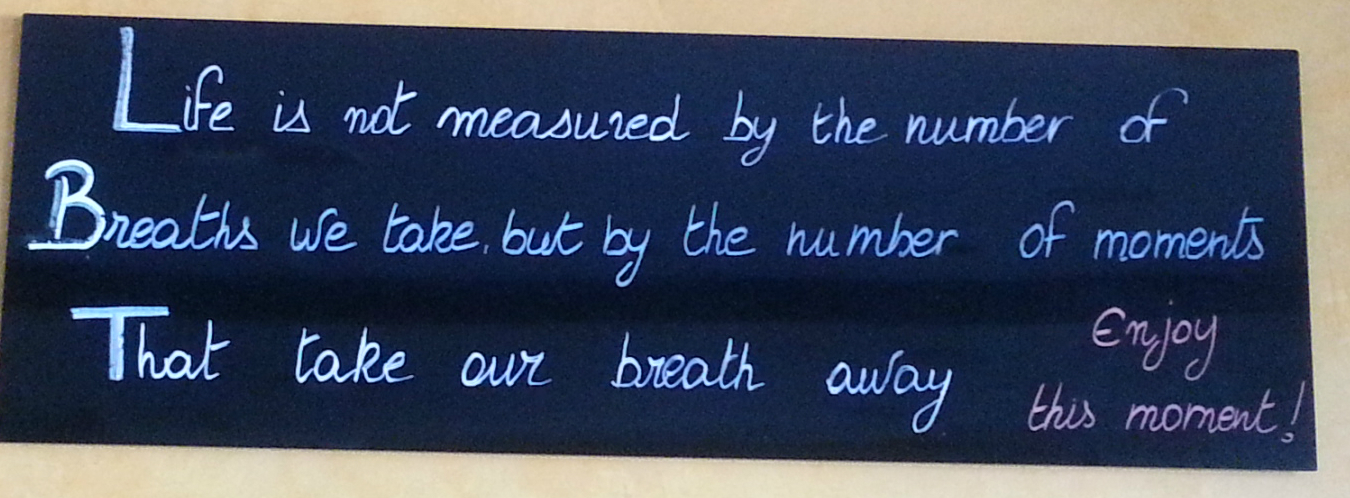 Life is not measured by the number of
Breaths we take, but by the number of moments
That take our breath away
Enjoy
this moment!